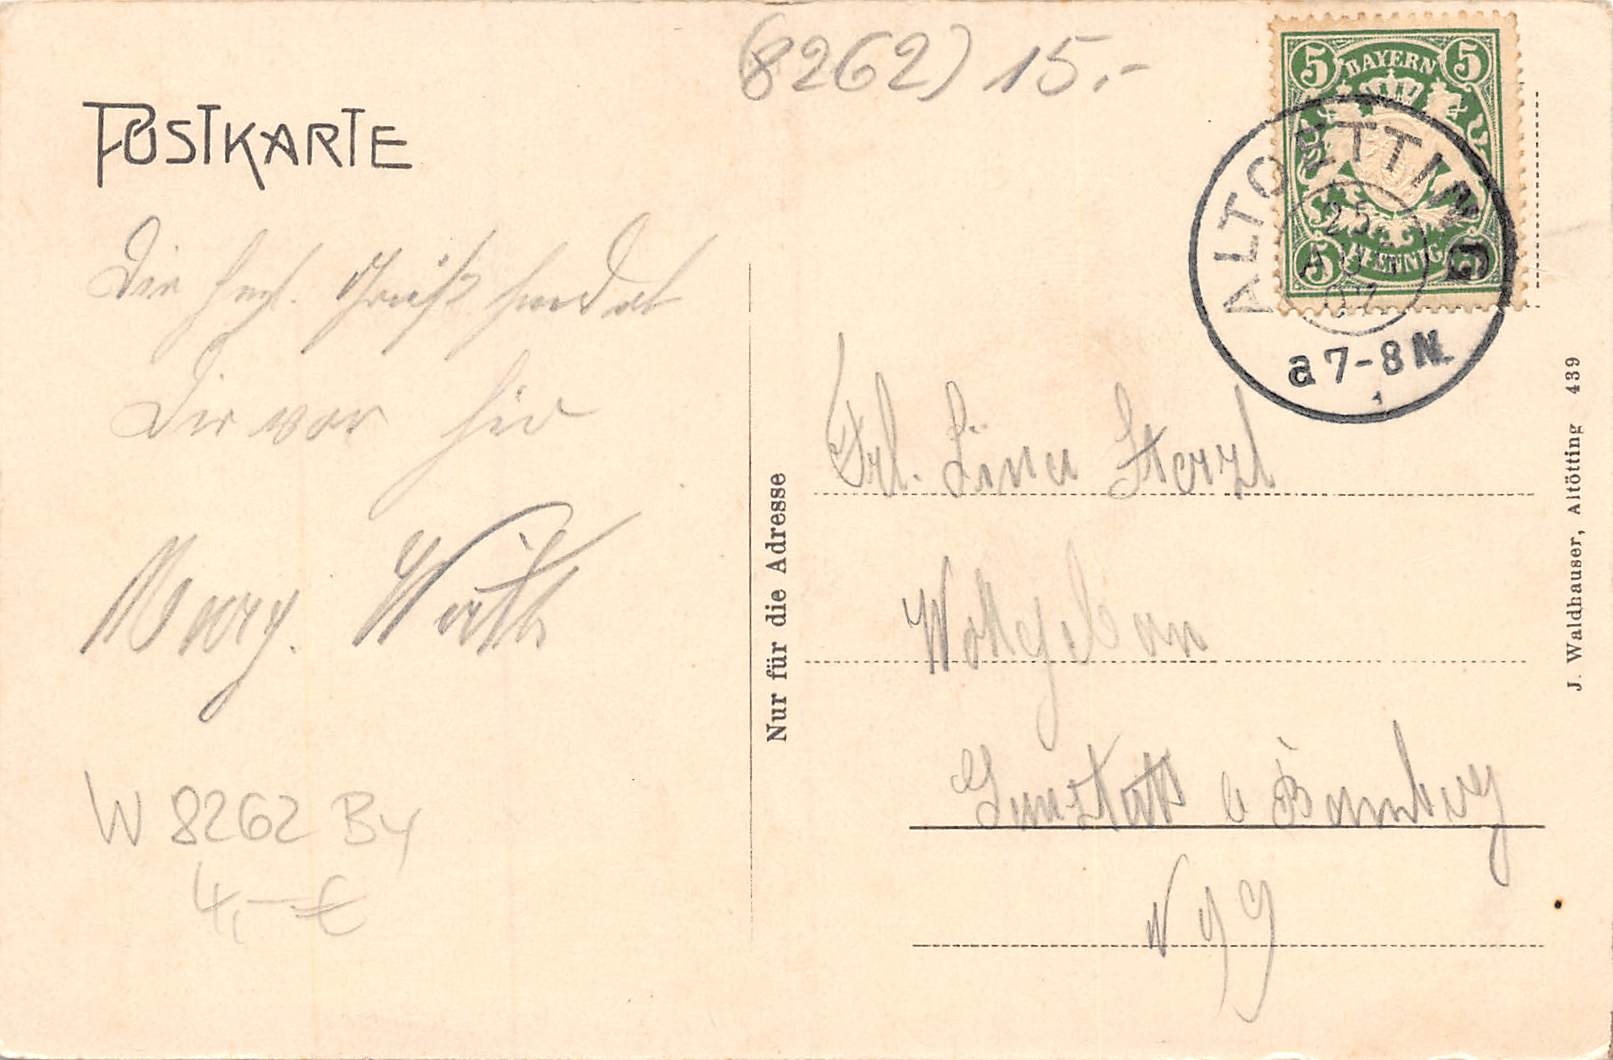 (8262) 15.-
POSTKARTE
BAYERN
5 5
5 5
PFENNIG
ALTOETTING
25
a 7-8 N.
Die herzl. Grüße sendet
Dir von hier
Marg. Wirth
W 8262 By
4,- €
Nur für die Adresse
Frl. Lina
b Bamberg
N 99
J. Waldhauser, Altötting 439